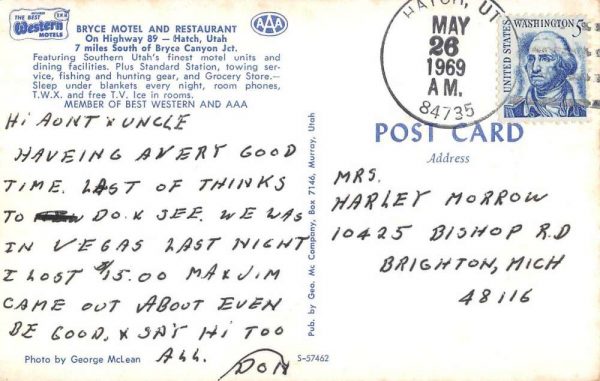 THE BEST
Western
MOTELS
BRYCE MOTEL AND RESTAURANT
On Highway 89 — Hatch, Utah
7 miles South of Bryce Canyon Jct.
Featuring Southern Utah's finest motel units and
dining facilities. Plus Standard Station, towing ser-
vice, fishing and hunting gear, and Grocery Store.—
Sleep under blankets every night, room phones,
T.W.X. and free T.V. Ice in rooms.
MEMBER OF BEST WESTERN AND AAA
AAA
HATCH, UT
MAY
26
1969
A.M.
84735
UNITED STATES
WASHINGTON 5c
Hi AONT & UNCLE
HAVEING A VERY GOOD
TIME. LAST OF THINKS
TO DO & SEE. WE WAS
IN VEGAS LAST NIGHT
I LOST $15.00 MA & JIM
CAME OUT ABOUT EVEN
BE GOOD, & SAY Hi TOO
ALL. DON
Photo by George McLean
Pub. by Geo. Mc Company, Box 7146, Murray, Utah
S-57462
POST CARD
Address
MRS.
HARLEY MORROW
10425 BISHOP RD
BRIGHTON, MICH
48116